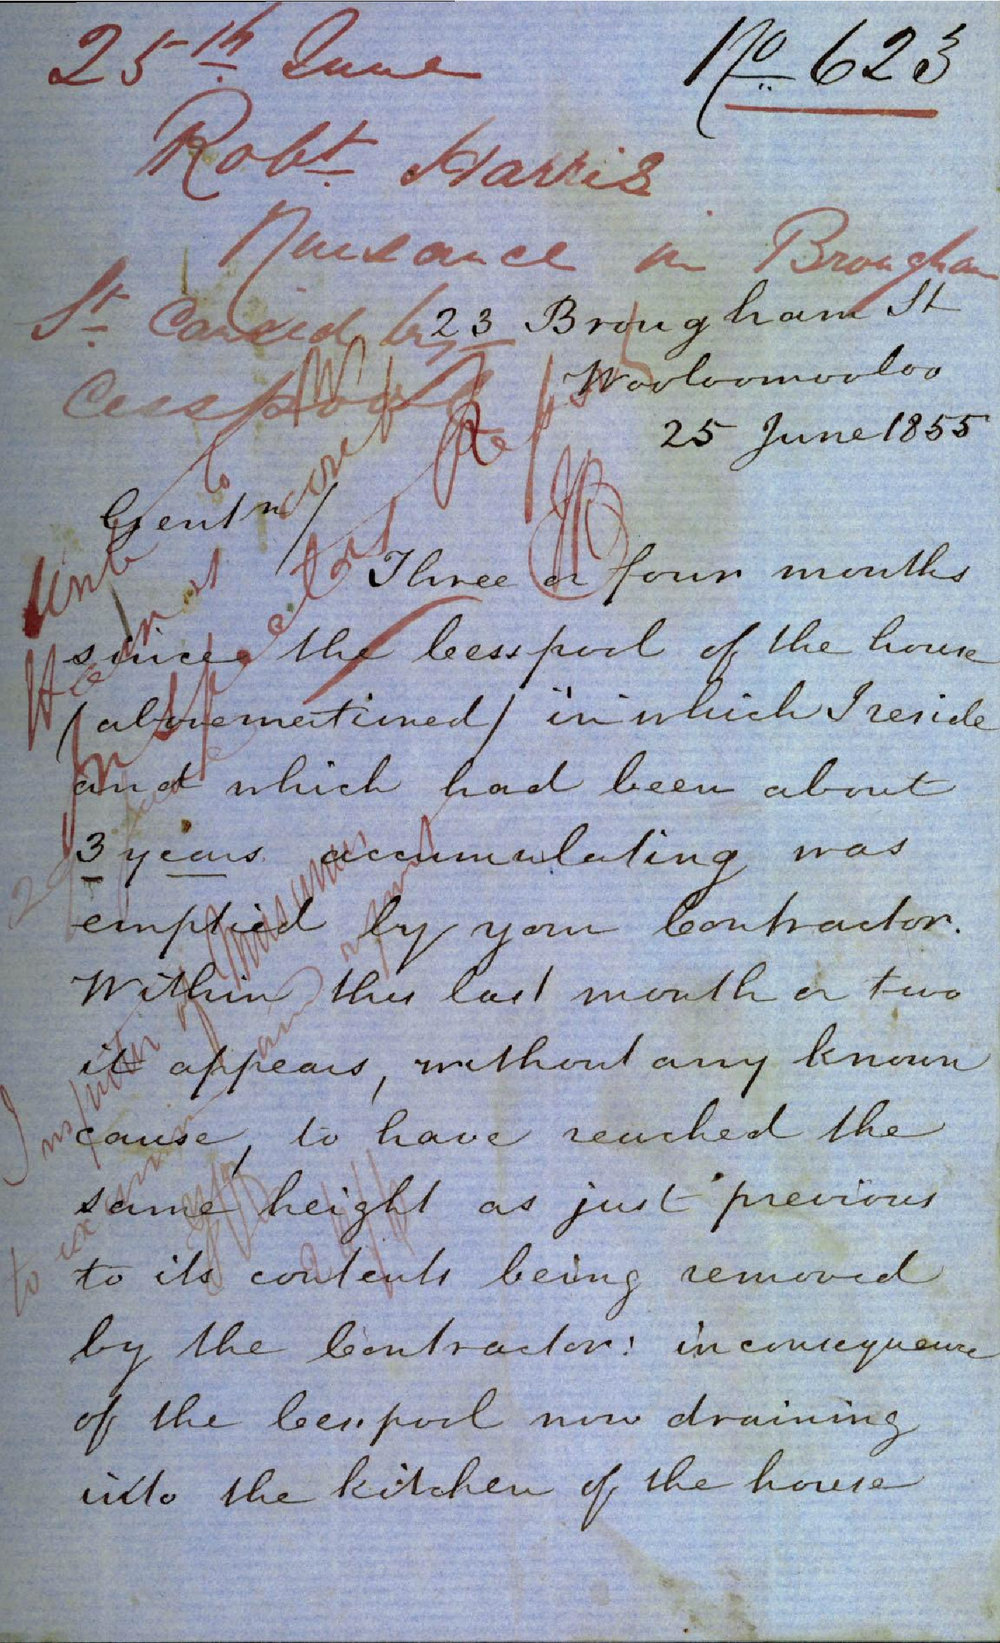 25th June
No. 623
Robt. Harris
Nuisance in Brougham
St. Caused by
Cesspool
23 Brougham St
Wooloomooloo
25 June 1855
Gentn/
Three or four months
since the Cesspool of the house
/abovementioned/ in which I reside
and which had been about
3 years accumulating was
emptied by your Contractor.
Within this last month or two
it appears, without any known
cause, to have reached the
same height as just previous
to its contents being removed
by the Contractor: in consequence
of the Cesspool now draining
into the kitchen of the house
Inspectors Rep
Inspector of Nuisances
to examine and report